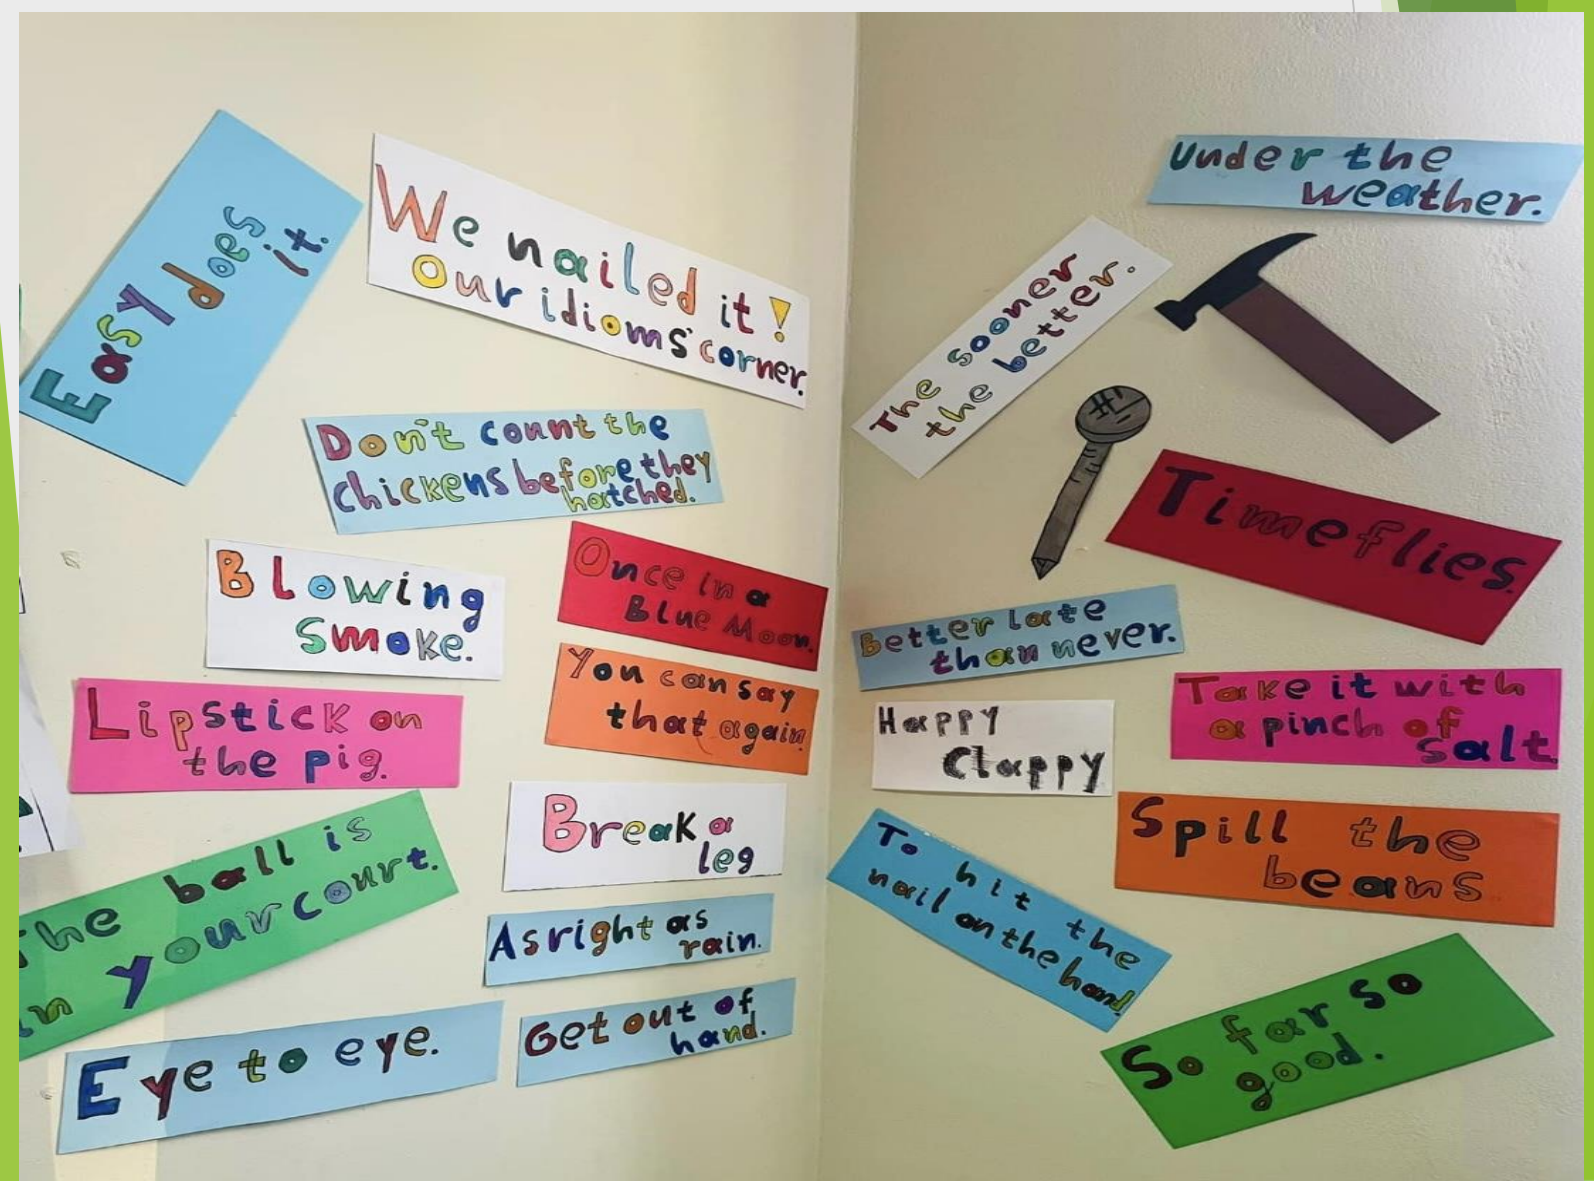 Easy does
it.
We nailed it!
Our idioms' corner.
Don't count the
chickens before they
hatched.
Blowing
Smoke.
Once in a
Blue Moon.
Lipstick on
the pig.
You can say
that again
Break a
leg
The ball is
in your court.
As right as
rain.
Eye to eye.
Get out of
hand.
Under the
weather.
The sooner
the better.
Time flies.
Better late
than never.
Take it with
a pinch of
salt.
Happy
Clappy
Spill the
beans
To hit the
nail on the head.
So far so
good.